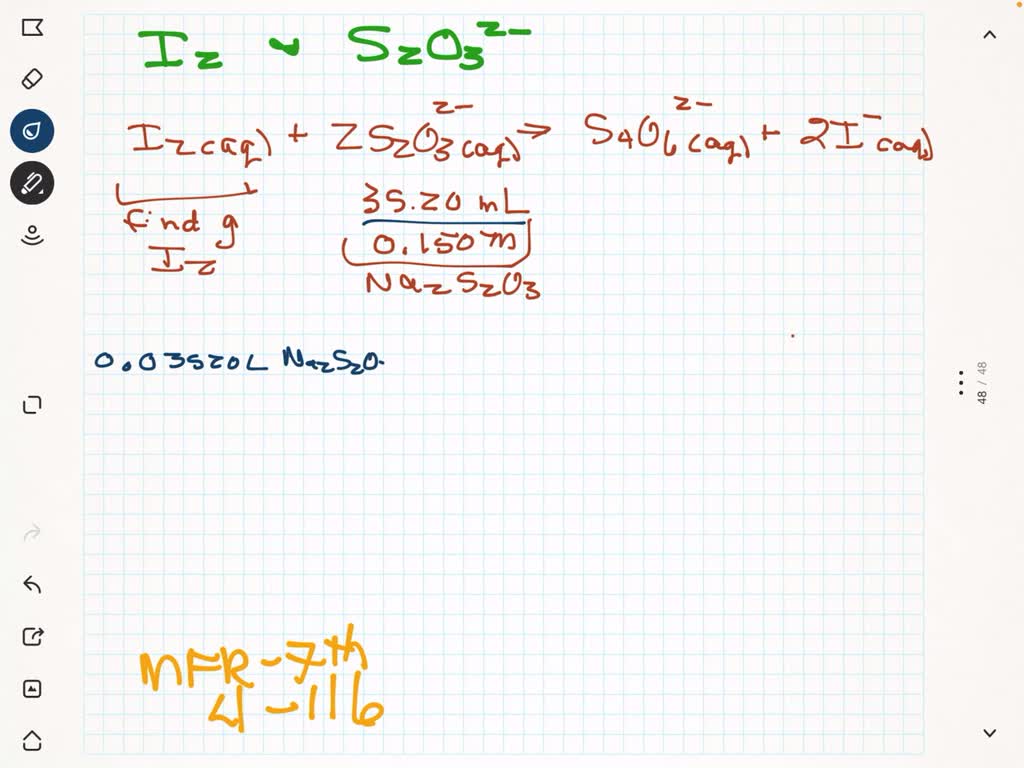 I2 ~ S2O3 2-
I2(aq) + 2S2O3 2-(aq) → S4O6 2-(aq) + 2I-(aq)
find g
I2
35.20 mL
0.150 M
Na2S2O3
0.03520L Na2S2O
48 / 48
MFR-7th
4-116